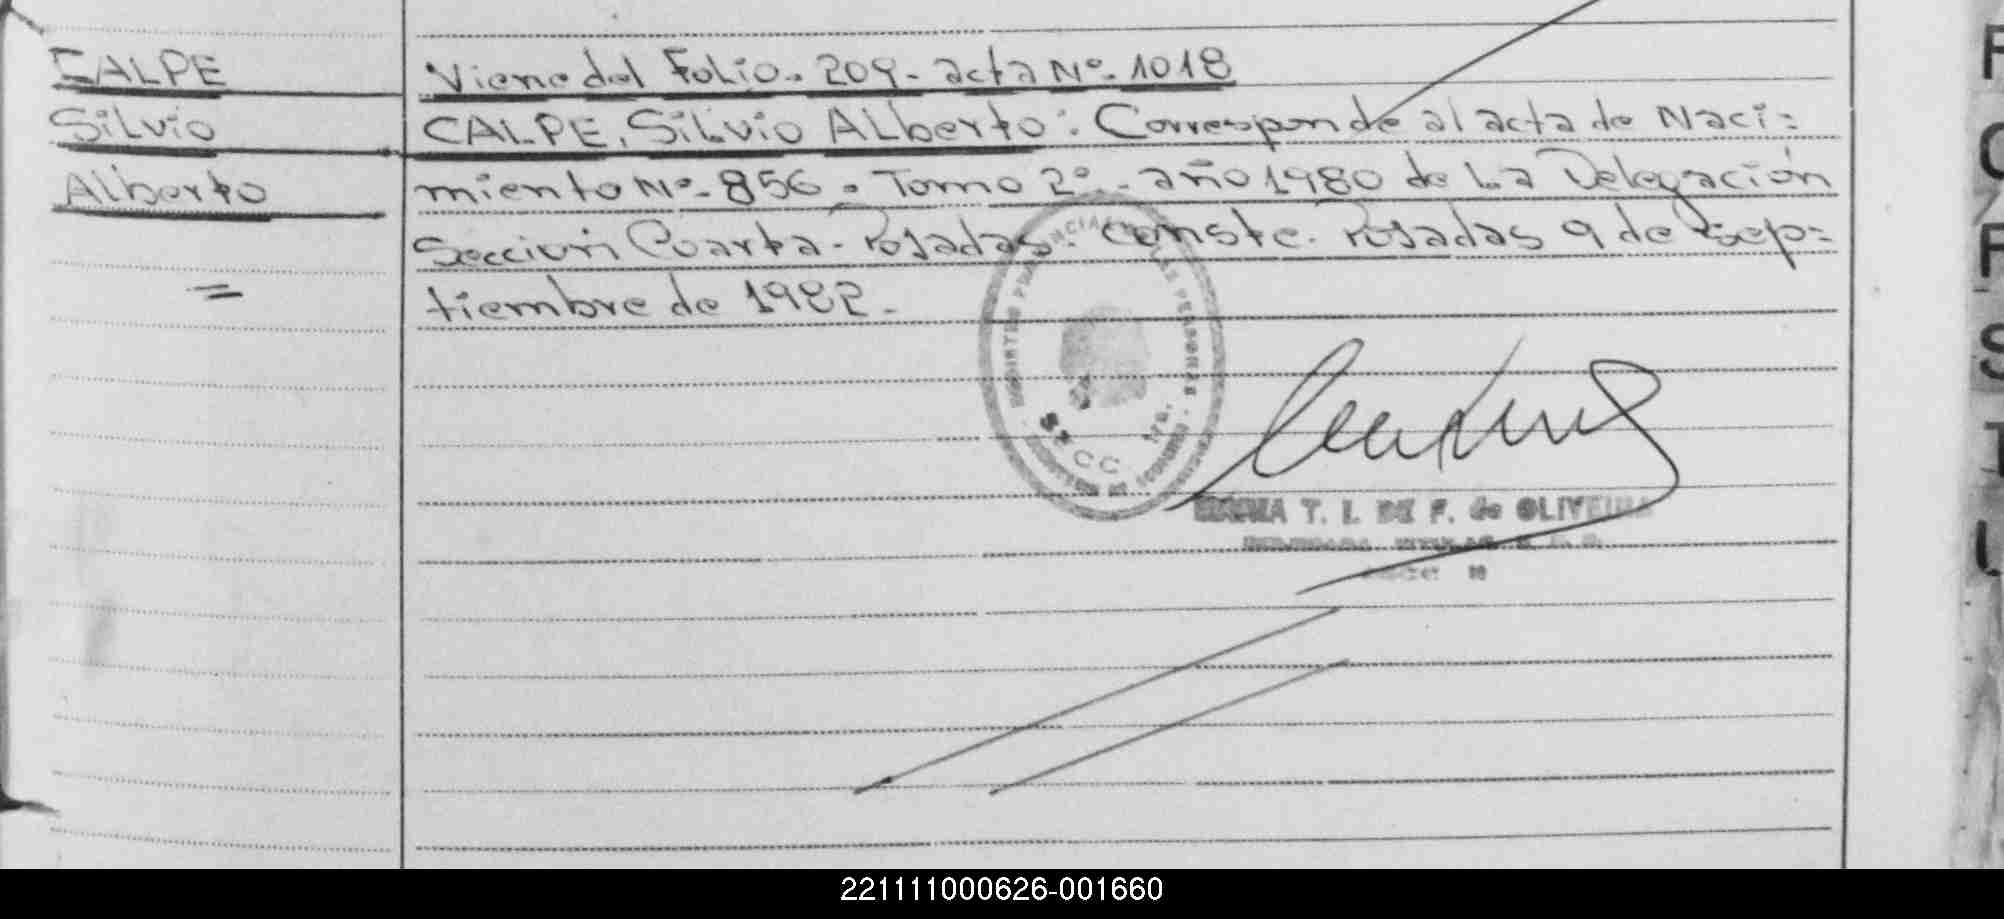 CALPE
Silvio
Alberto
=
Viene del Folio. 209- acta Nº. 1018
CALPE, Silvio Alberto: Corresponde al acta de Naci=
miento Nº- 856. Tomo 2º- año 1980 de La Delegación
Sección Cuarta- Posadas. Conste. Posadas 9 de Sep=
tiembre de 1982.-
MARIA T. I. DE F. de OLIVEIRA
221111000626-001660